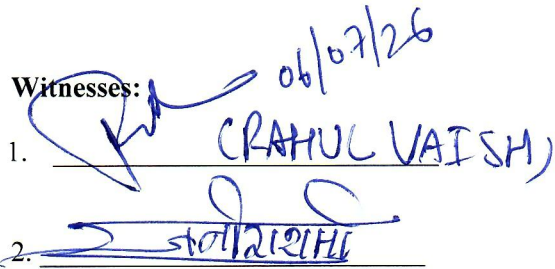 06/07/26
Witnesses:
1. (RAHUL VAISH)
2.